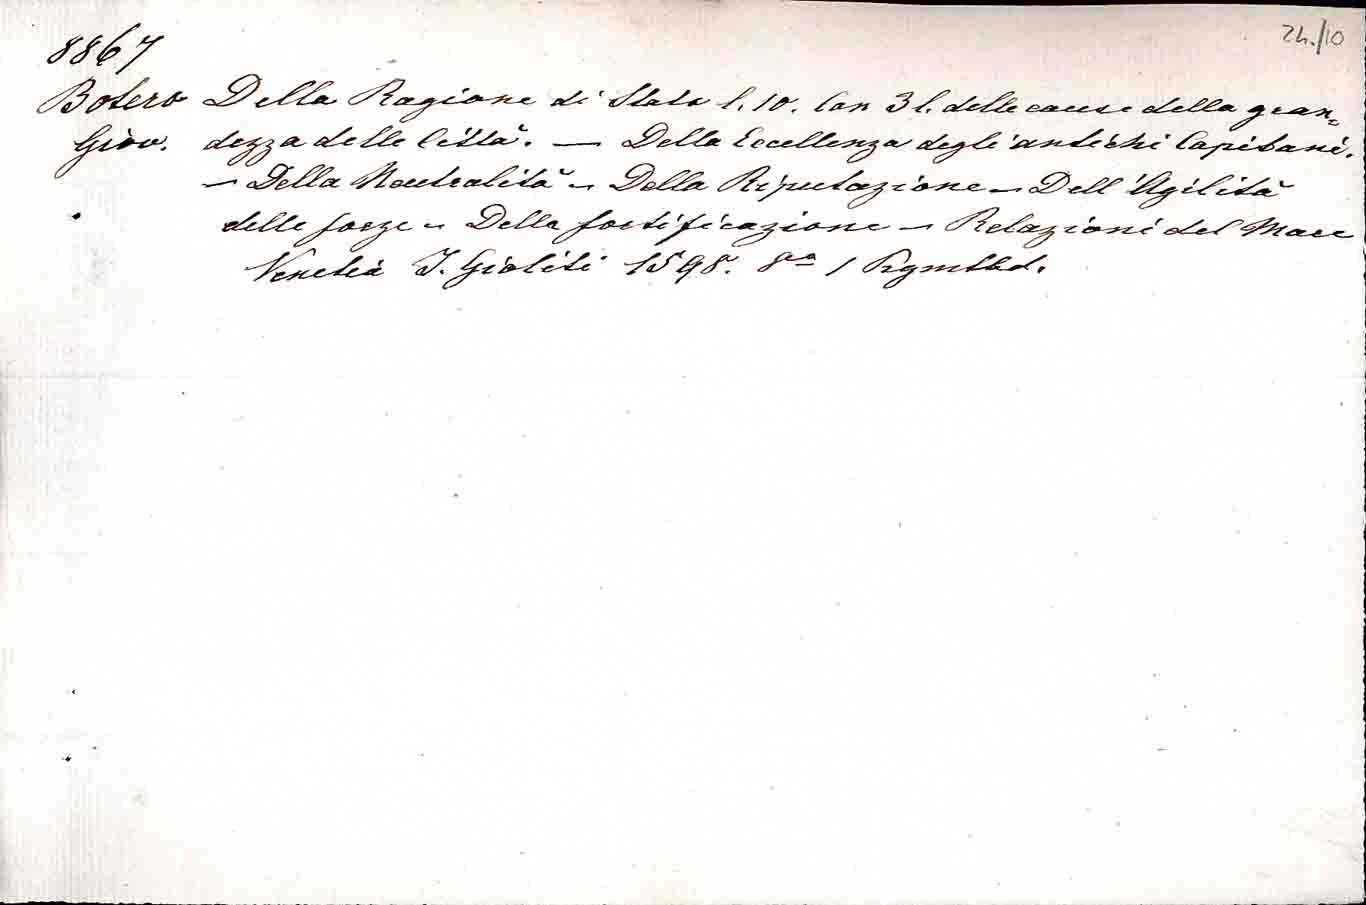 24./10
8867
Botero Della Ragione di Stato l. 10. Con 3 l. delle cause della gran-
Giov. dezza delle Città. — Della Eccellenza degli antichi Capitani.
— Della Neutralità — Della Riputazione — Dell'Agilità
delle forze — Della fortificazione — Relazioni del Mare
Venetia I. Gioliti 1598. 8º / Pgmtbd.